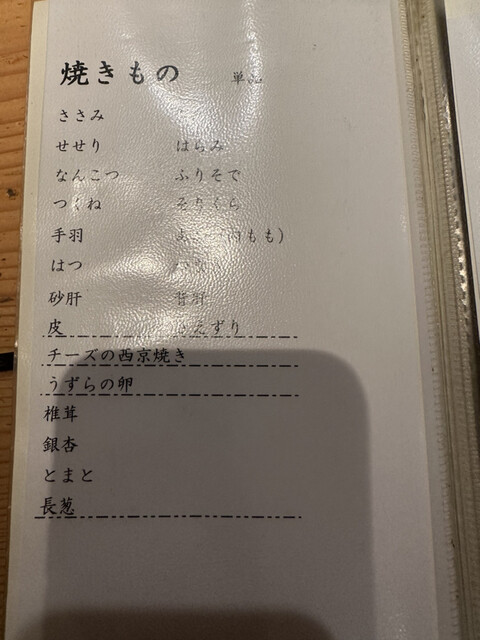 焼きもの 単品
ささみ
せせり はらみ
なんこつ ふりそで
つくね そりくら
手羽 (内もも)
はつ
砂肝 背肝
皮 さえずり
チーズの西京焼き
うずらの卵
椎茸
銀杏
とまと
長葱